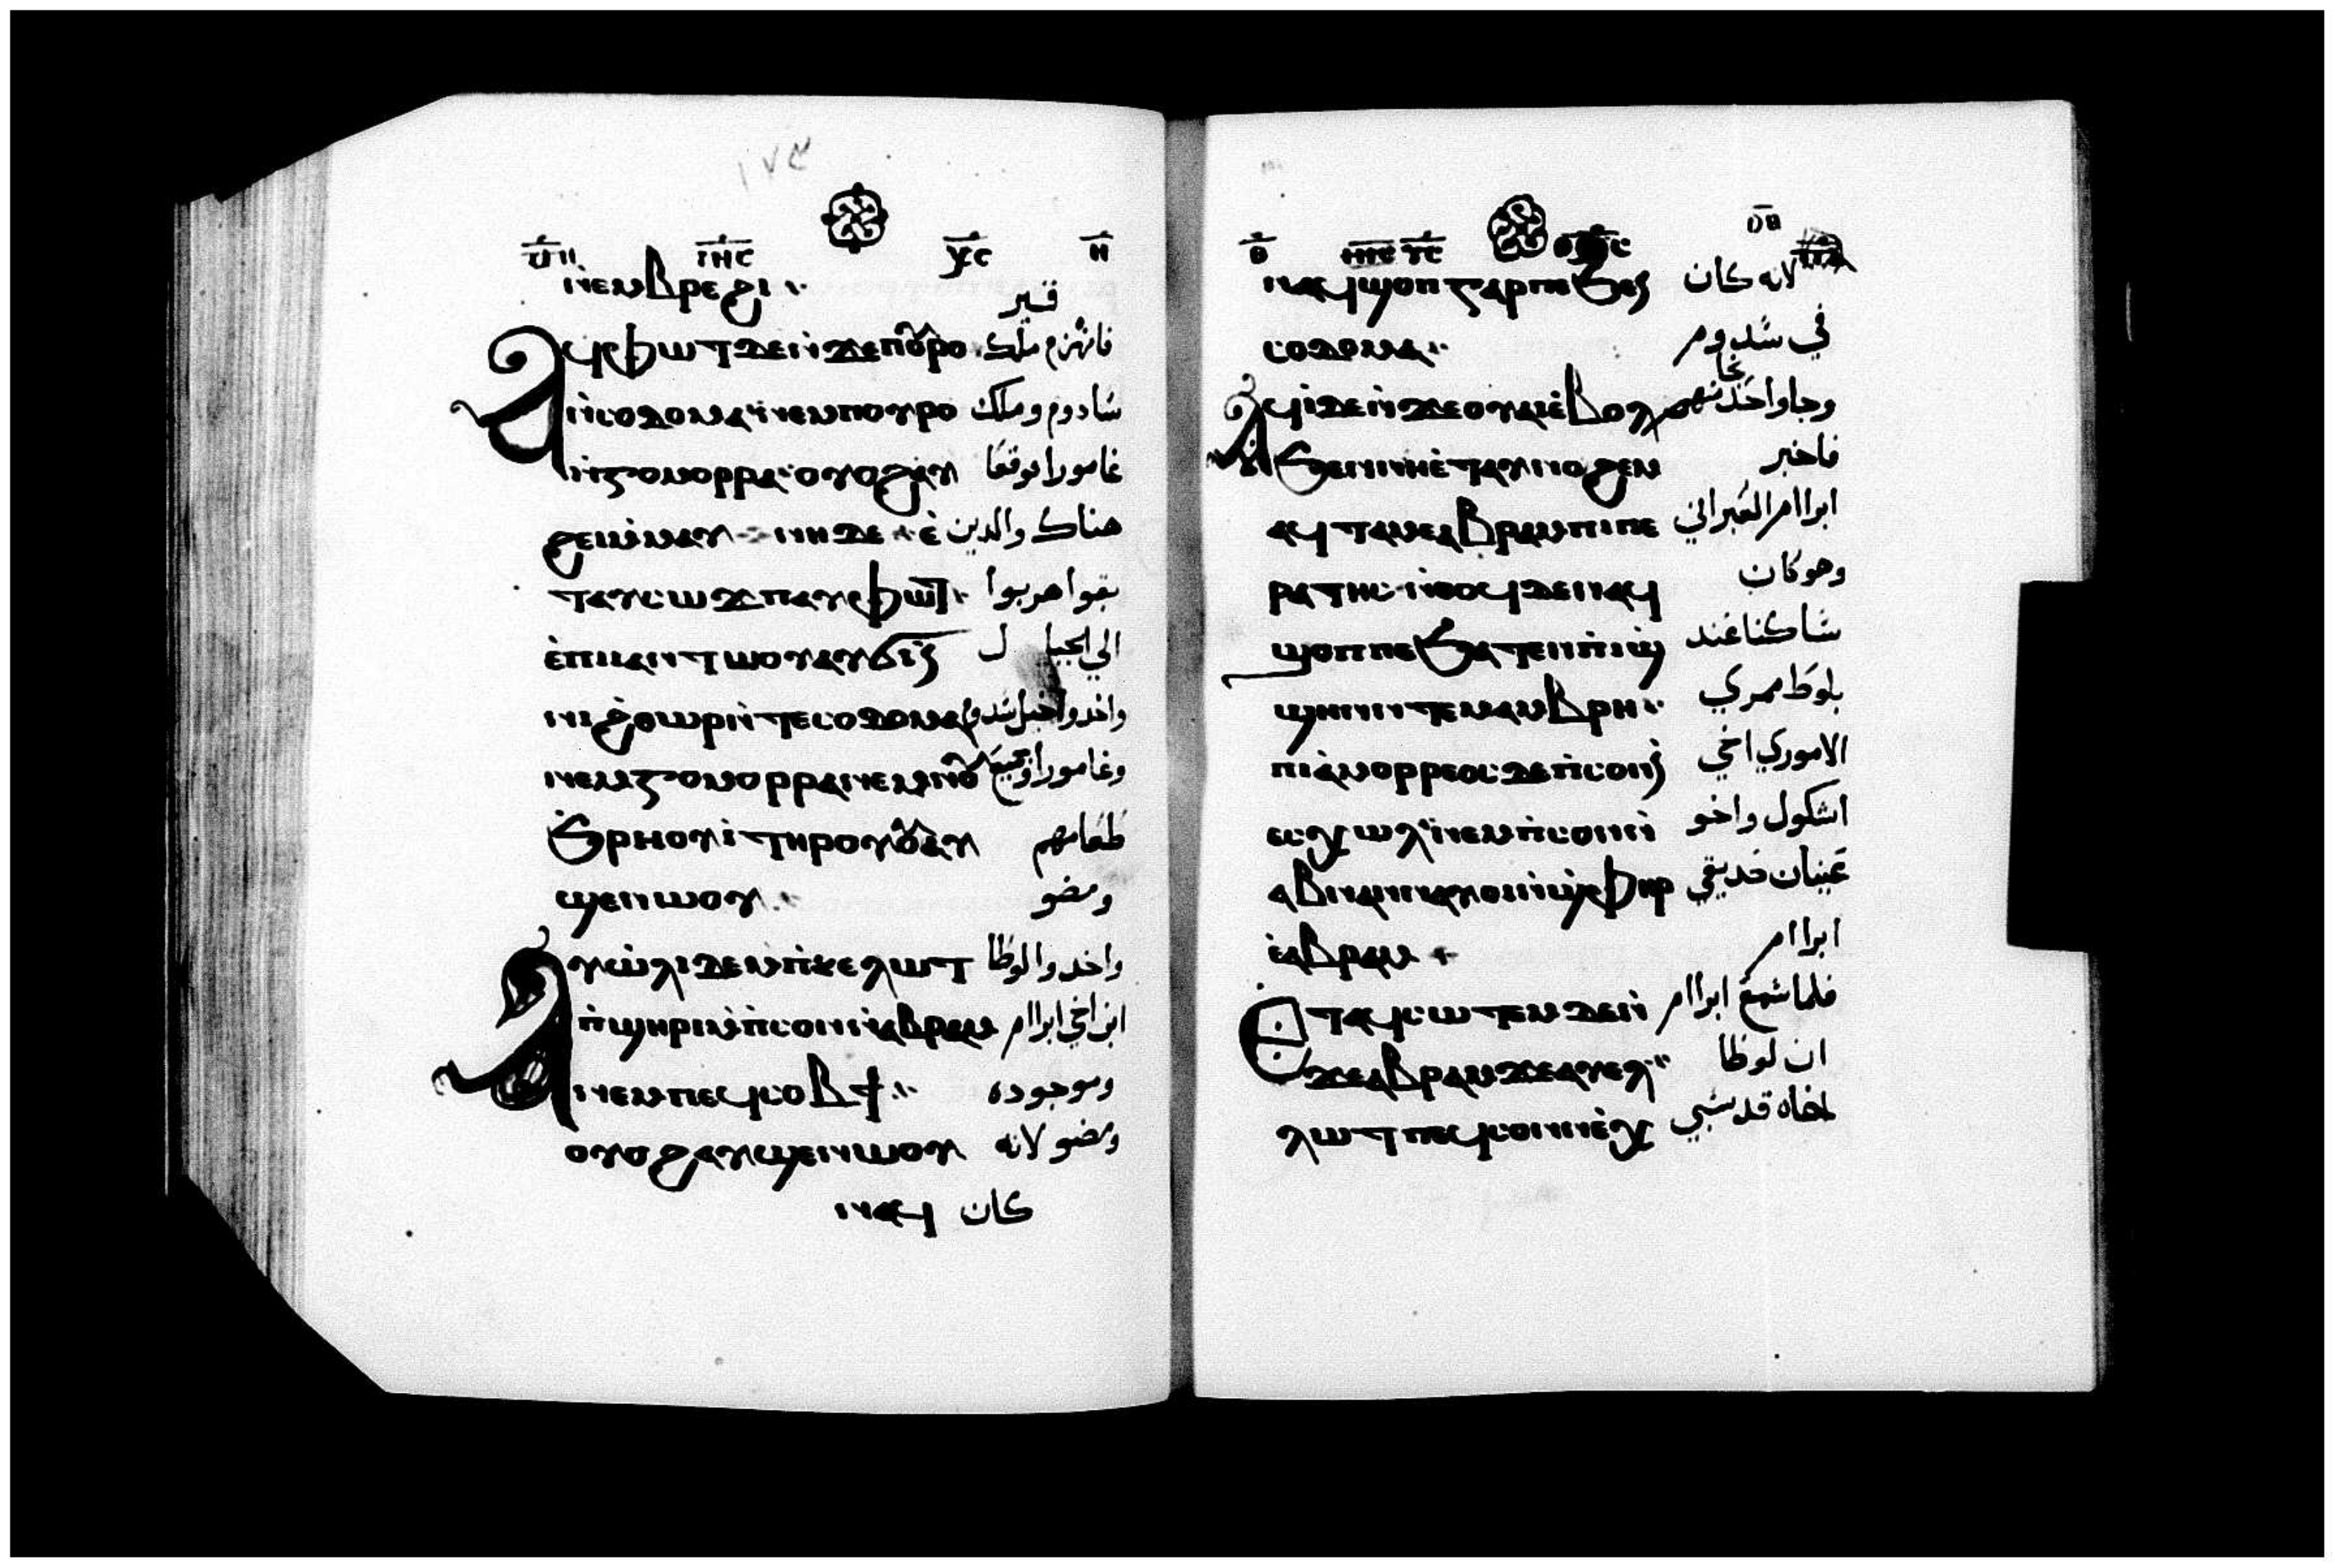 ⲛ̀ⲉⲙⲃⲣⲉϩⲓ
قير
ⲁϥⲫⲱⲧ ⲇⲉⲛ̀ϫⲉⲡⲟⲩⲣⲟ فانهزم ملك
ⲛ̀ⲥⲟⲇⲟⲙⲁ ⲛⲉⲙⲡⲟⲩⲣⲟ سادوم وملك
ⲛ̀ⲅⲟⲙⲟⲣⲣⲁ ⲟⲩⲟϩⲁⲩ غامورا فوقعا
ϩⲉⲓⲙ̀ⲙⲁⲩ ⲛⲏⲇⲉ ⲉ̀ هناك والدين
ⲧⲁⲩⲥⲱϫⲡ ⲁⲩⲫⲱⲧ بقوا هربوا
ⲉ̀ⲡⲓⲁⲛⲧⲱⲟⲩ ⲁⲩϭⲓ الي الجبل
ⲛⲓϩ̀ⲑⲱⲣ ⲛ̀ⲧⲉⲥⲟⲇⲟⲙⲁ واخدوا خيل سدوم
ⲛⲉⲙⲅⲟⲙⲟⲣⲣⲁ ⲛⲉⲙⲛⲟⲩ وغامورا وجميع
ϧⲣⲏⲟⲩⲓ̀ ⲧⲏⲣⲟⲩ ⲟⲩⲟϩ ⲁⲩ طعامهم
ϣⲉⲛⲱⲟⲩ ومضو
ⲁⲩⲱ̀ⲗⲓ ⲇⲉ ⲙ̀ⲡⲕⲉⲗⲱⲧ واخدوا لوطا
ⲡ̀ϣⲏⲣⲓ ⲙ̀ⲡ̀ⲥⲟⲛ ⲛ̀ⲁⲃⲣⲁⲙ ابن اخي ابراام
ⲛⲉⲙⲡⲉϥⲥⲟⲃϯ وموجوده
ⲟⲩⲟϩ ⲁⲩϣⲉⲛⲱⲟⲩ ومضو لانه
ⲛⲁϥ كان
ⲛⲁϥϣⲟⲡ ⲅⲁⲣ ⲡⲉ ϧⲉⲛ لانه كان
ⲥⲟⲇⲟⲙⲁ في سدوم
ⲁϥⲓ̀ ⲇⲉⲛ̀ϫⲉⲟⲩⲁⲓ ⲉ̀ⲃⲟⲗ وجا واحد
ϧⲉⲛⲛⲏⲉ̀ⲧⲁⲩⲛⲟϩⲉⲙ فاخبر
ⲁϥⲧⲁⲙⲉⲁⲃⲣⲁⲙ ⲡⲓⲡⲉ ابراام العبراني
ⲣⲁⲧⲏⲥ ⲛ̀ⲑⲟϥ ⲇⲉ ⲛⲁϥ وهو كان
ϣⲟⲡ ⲡⲉ ϧⲁⲧⲉⲛⲡ̀ⲓϣ̀ ساكنا عند
ϣⲏⲛ ⲛ̀ⲧⲉⲙⲁⲙⲃⲣⲏ بلوط ممري
ⲡⲓⲁ̀ⲙⲟⲣⲣⲉⲟⲥ ⲇⲉ ⲡ̀ⲥⲟⲛ الاموري اخي
ⲉⲥⲭⲱⲗ ⲛⲉⲙⲡ̀ⲥⲟⲛⲛ̀ اشكول واخو
ⲁⲃⲛⲁⲛ ⲛⲁⲩⲟⲓⲛ̀ϣ̀ⲫⲏⲣ عينان صديقي
ⲉ̀ⲁⲃⲣⲁⲙ ابراام
ⲉⲧⲁϥⲥⲱⲧⲉⲙ ⲇⲉⲛ̀ فلما سمع ابراام
ϫⲉⲁⲃⲣⲁⲙ ϫⲉⲁⲩⲉⲭ ان لوطا
ⲗⲱⲧ ⲡⲉϥⲥⲟⲛ ⲛⲉ̀ⲭ اخاه قد سبي